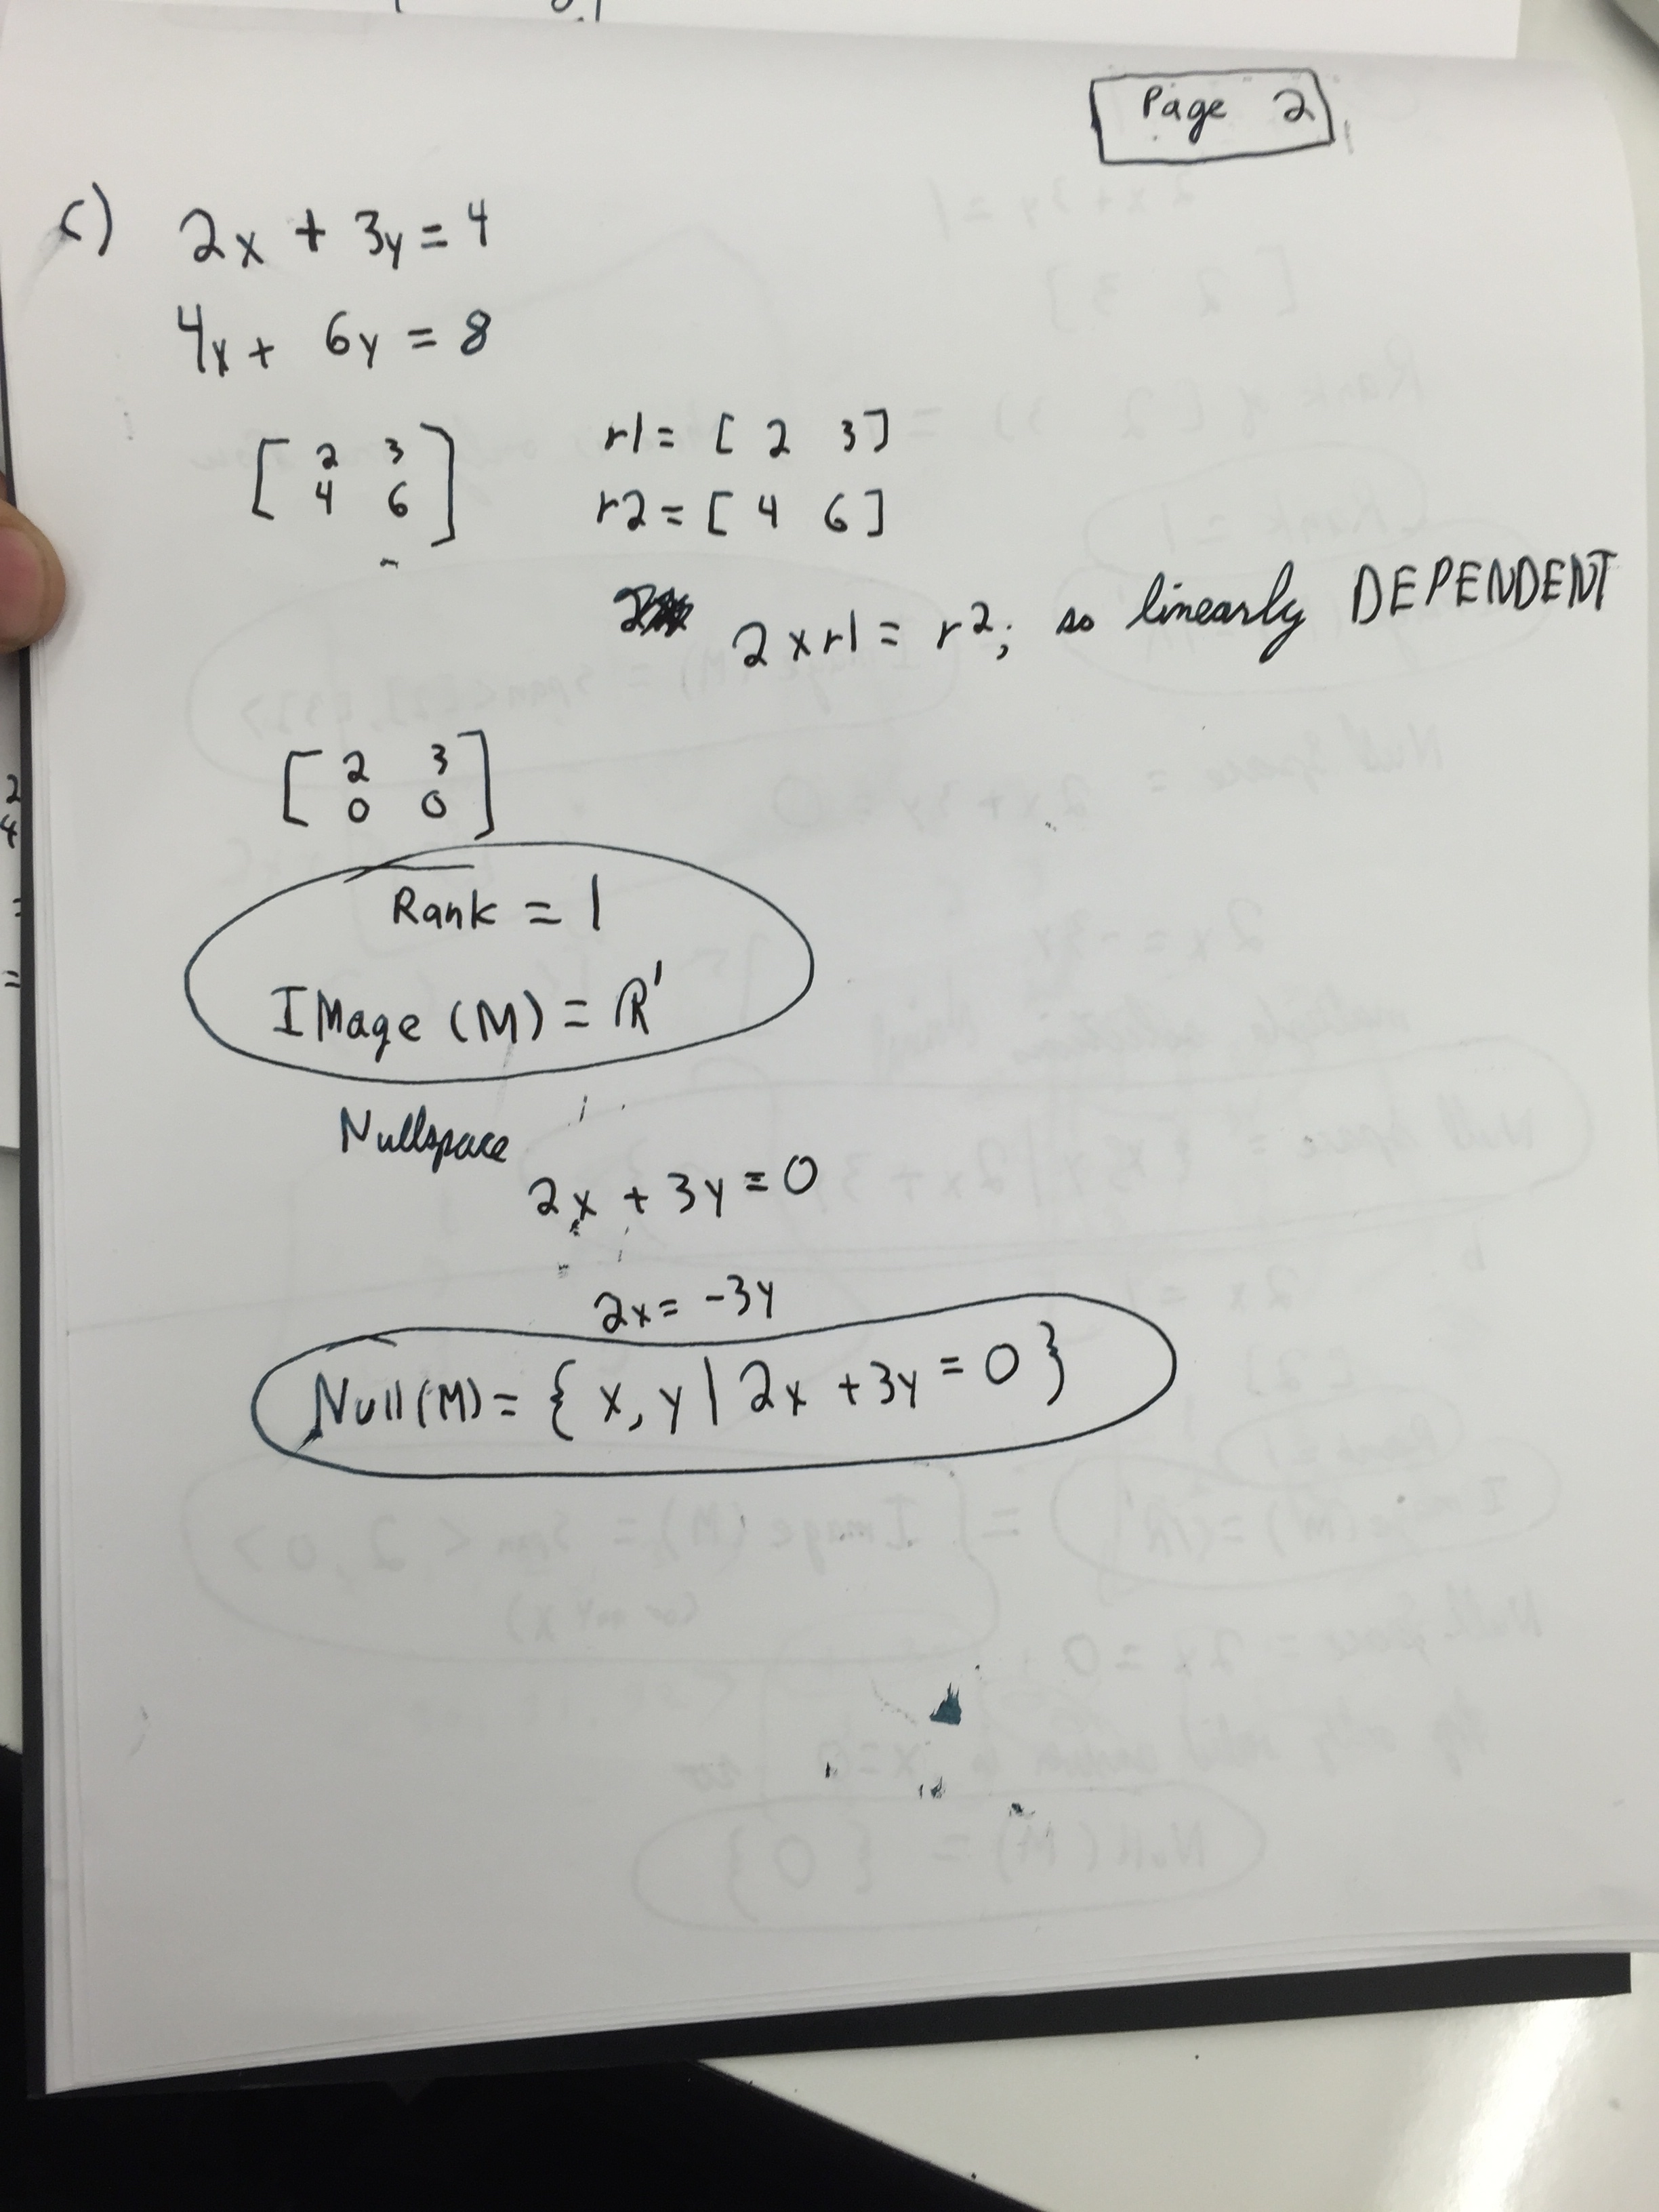 Page 2
c) 2x + 3y = 4
4x + 6y = 8
[ 2 3
4 6 ]
r1 = [ 2 3 ]
r2 = [ 4 6 ]
2 x r1 = r2; so linearly DEPENDENT
[ 2 3
0 0 ]
Rank = 1
IMage (M) = ℝ¹
Nullspace
2x + 3y = 0
2x = -3y
Null(M) = { x, y | 2x + 3y = 0 }